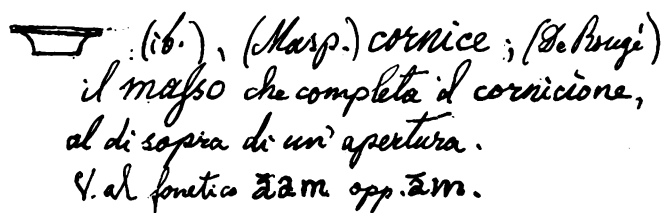 (ib.), (Masp.) cornice; (De Rougé)
il masso che completa il cornicione,
al di sopra di un' apertura.
V. al fonetico āam opp. ām.